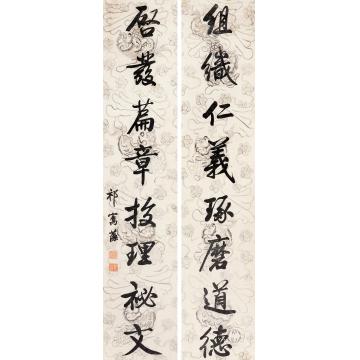 組織仁義琢磨道德
啓發篇章挍理祕文
祁寯藻